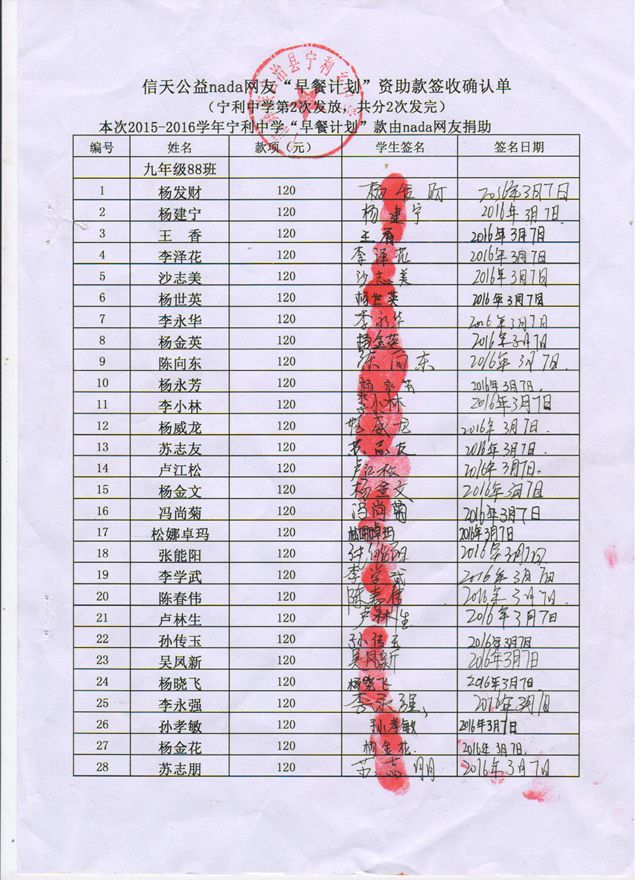 信天公益nada网友“早餐计划”资助款签收确认单
（宁利中学第2次发放，共分2次发完）
本次2015-2016学年宁利中学“早餐计划”款由nada网友捐助
编号 姓名 款项（元） 学生签名 签名日期
九年级88班
1 杨发财 120 杨发财 2016年3月7日
2 杨建宁 120 杨建宁 2016年3月7日.
3 王 香 120 王香 2016年3月7日
4 李泽花 120 李泽花 2016年3月7日
5 沙志美 120 沙志美 2016年3月7日
6 杨世英 120 杨世英 2016年3月7日
7 李永华 120 李永华 2016年3月7日
8 杨金英 120 杨金英 2016年3月7日
9 陈向东 120 陈向东 2016年3月7日.
10 杨永芳 120 杨永芳 2016年3月7日.
11 李小林 120 李小林 2016年3月7日
12 杨威龙 120 杨威龙 2016年3月7日.
13 苏志友 120 苏志友 2016年3月7日
14 卢江松 120 卢江松 2016年3月7日.
15 杨金文 120 杨金文 2016年3月7日
16 冯尚菊 120 冯尚菊 2016年3月7日
17 松娜卓玛 120 松娜卓玛 2016年3月7日
18 张能阳 120 张能阳 2016年3月7日
19 李学武 120 李学武 2016年3月7日
20 陈春伟 120 陈春伟 2016年3月7日.
21 卢林生 120 卢林生 2016年3月7日
22 孙传玉 120 孙传玉 2016年3月7日
23 吴凤新 120 吴凤新 2016年3月7日
24 杨晓飞 120 杨晓飞 2016年3月7日
25 李永强 120 李永强 2016年3月7日
26 孙孝敏 120 孙孝敏 2016年3月7日
27 杨金花 120 杨金花 2016年3月7日.
28 苏志朋 120 苏志朋 2016年3月7日